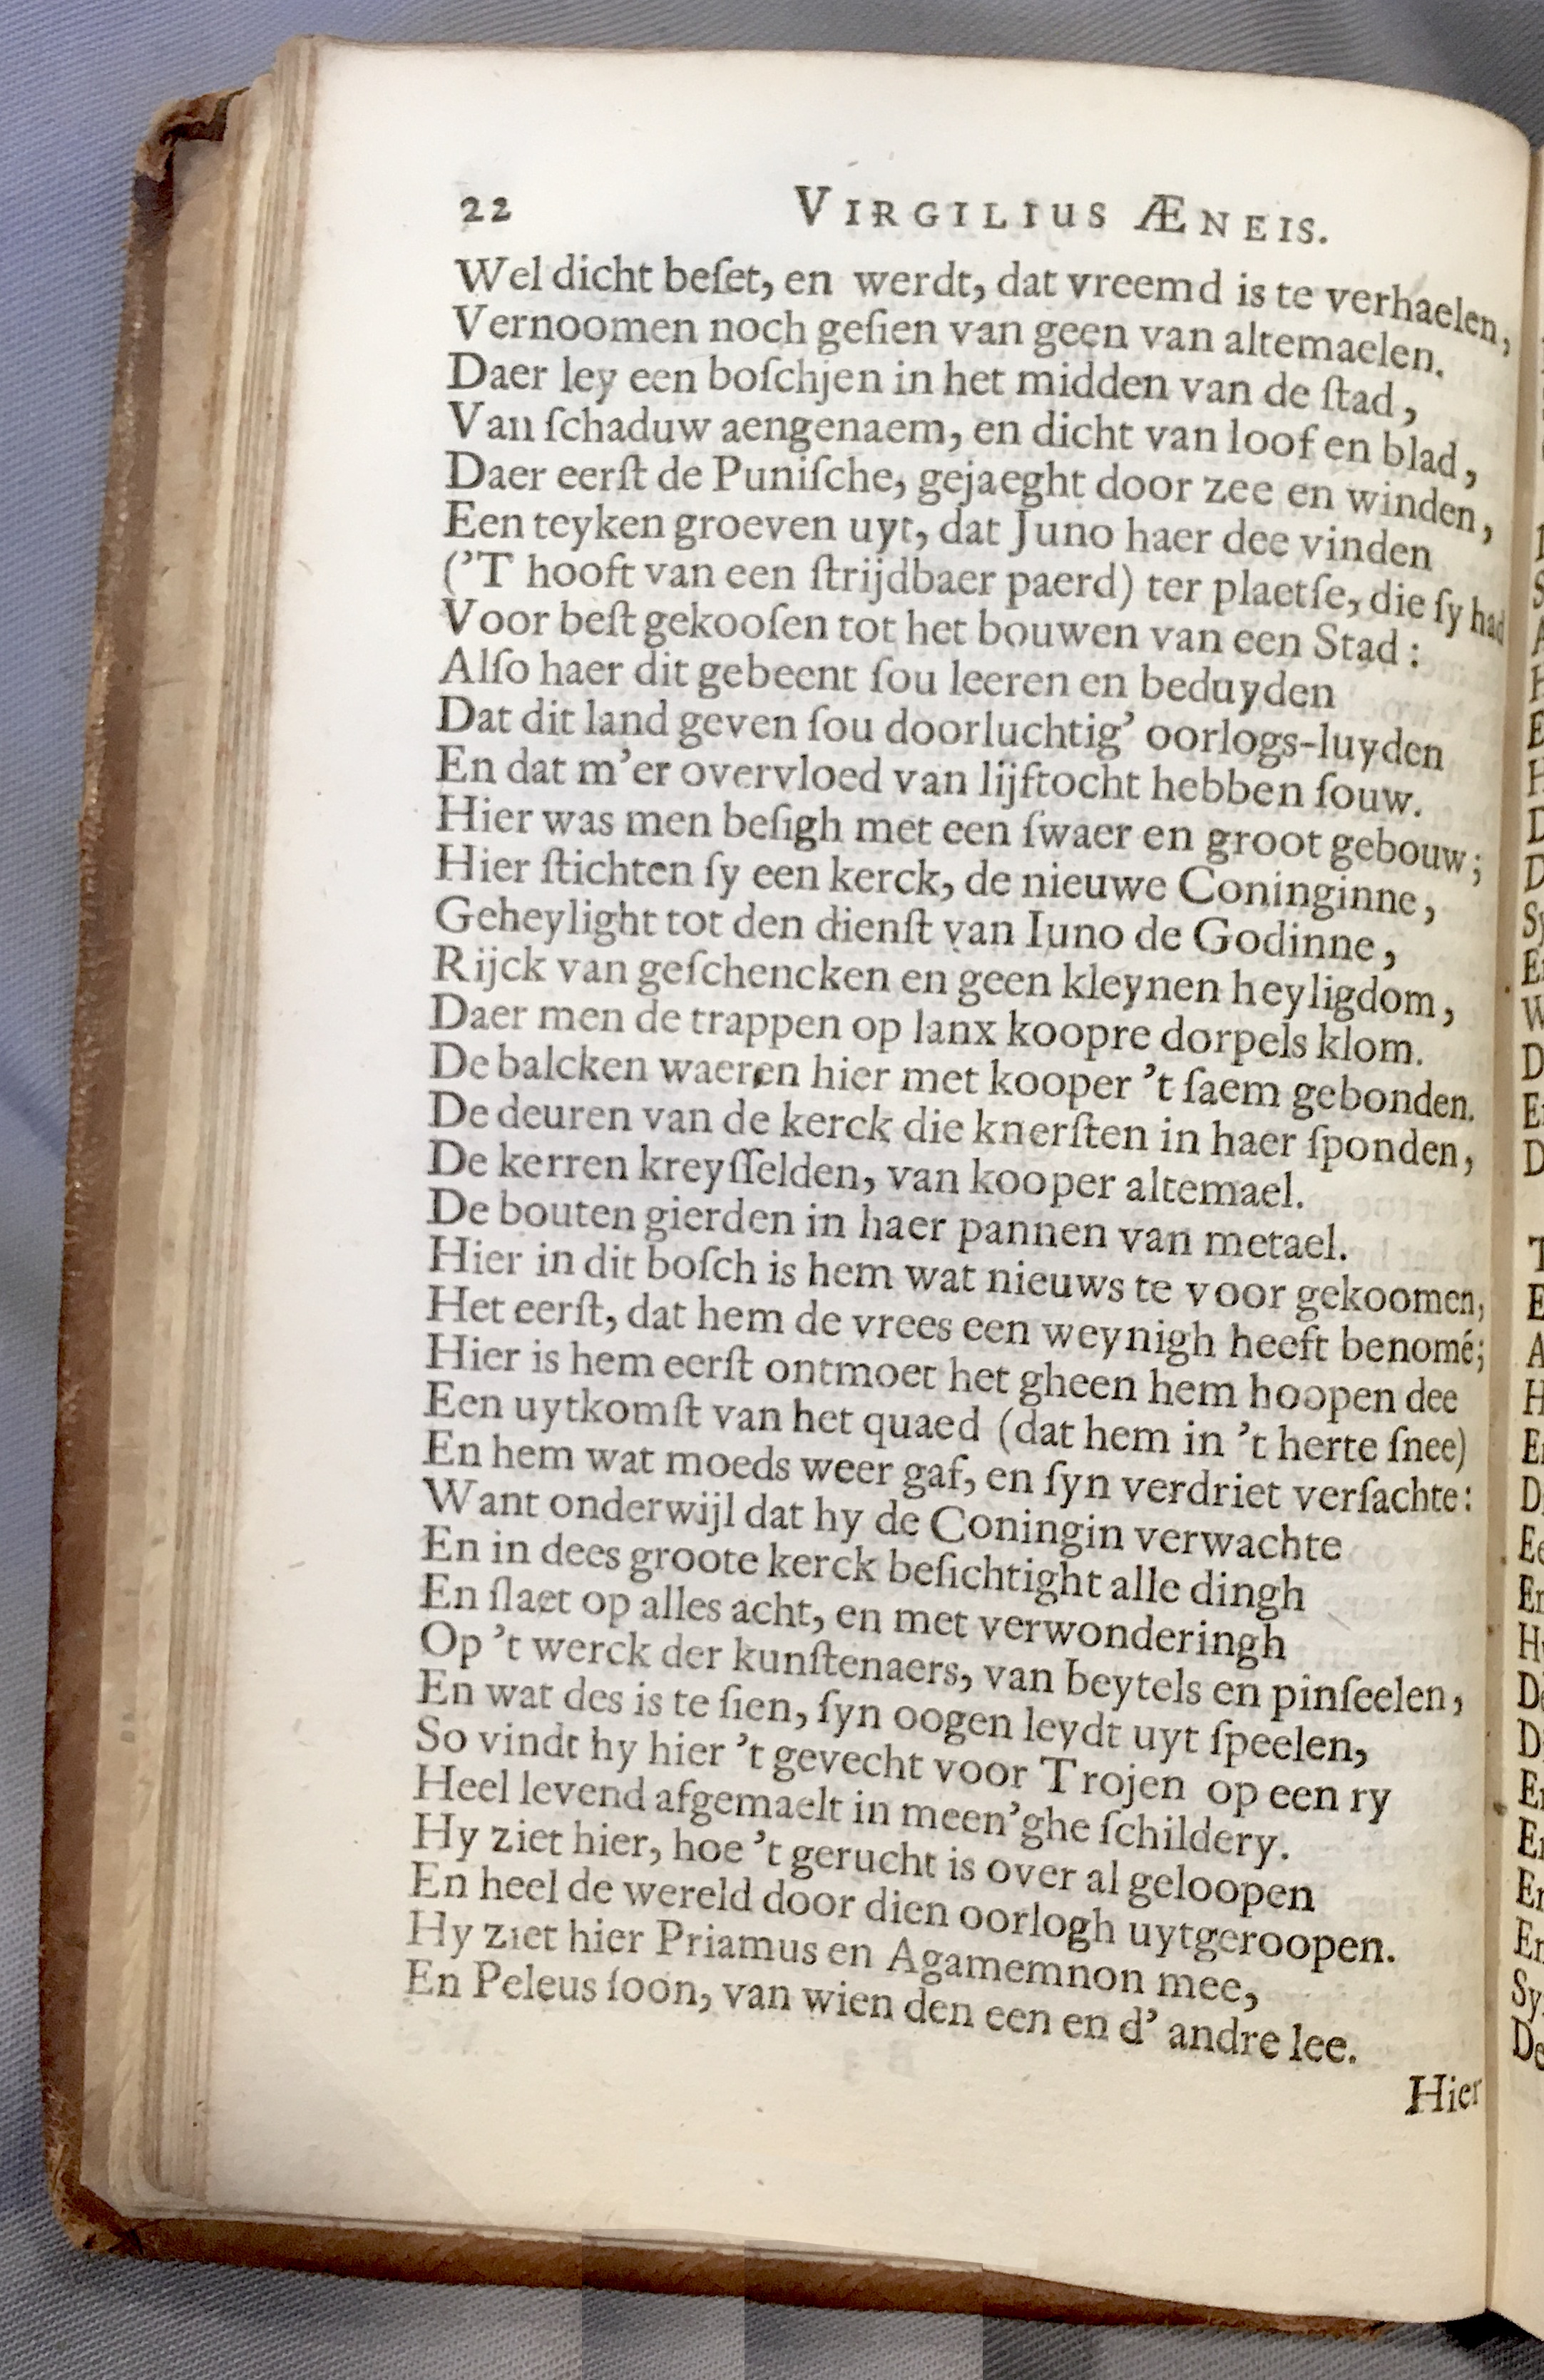 22 VIRGILIUS ÆNEIS.
Wel dicht beſet, en werdt, dat vreemd is te verhaelen,
Vernoomen noch geſien van geen van altemaelen.
Daer ley een boſchjen in het midden van de ſtad,
Van ſchaduw aengenaem, en dicht van loof en blad,
Daer eerſt de Puniſche, gejaeght door zee en winden,
Een teyken groeven uyt, dat Juno haer dee vinden
(’T hooft van een ſtrijdbaer paerd) ter plaetſe, die ſy had
Voor beſt gekooſen tot het bouwen van een Stad:
Alſo haer dit gebeent ſou leeren en beduyden
Dat dit land geven ſou doorluchtig’ oorlogs-luyden
En dat m’er overvloed van lijftocht hebben ſouw.
Hier was men beſigh met een ſwaer en groot gebouw;
Hier ſtichten ſy een kerck, de nieuwe Coninginne,
Geheylight tot den dienſt van Iuno de Godinne,
Rijck van geſchencken en geen kleynen heyligdom,
Daer men de trappen op lanx koopre dorpels klom.
De balcken waeren hier met kooper ’t ſaem gebonden.
De deuren van de kerck die knerſten in haer ſponden,
De kerren kreyſſelden, van kooper altemael.
De bouten gierden in haer pannen van metael.
Hier in dit boſch is hem wat nieuws te voor gekoomen,
Het eerſt, dat hem de vrees een weynigh heeft benomé;
Hier is hem eerſt ontmoet het gheen hem hoopen dee
Een uytkomſt van het quaed (dat hem in ’t herte ſnee)
En hem wat moeds weer gaf, en ſyn verdriet verſachte:
Want onderwijl dat hy de Coningin verwachte
En in dees groote kerck beſichtight alle dingh
En ſlaet op alles acht, en met verwonderingh
Op ’t werck der kunſtenaers, van beytels en pinſeelen,
En wat des is te ſien, ſyn oogen leydt uyt ſpeelen,
So vindt hy hier ’t gevecht voor Trojen op een ry
Heel levend afgemaelt in meen’ghe ſchildery.
Hy ziet hier, hoe ’t gerucht is over al geloopen
En heel de wereld door dien oorlogh uytgeroopen.
Hy ziet hier Priamus en Agamemnon mee,
En Peleus ſoon, van wien den een en d’ andre lee.
Hier